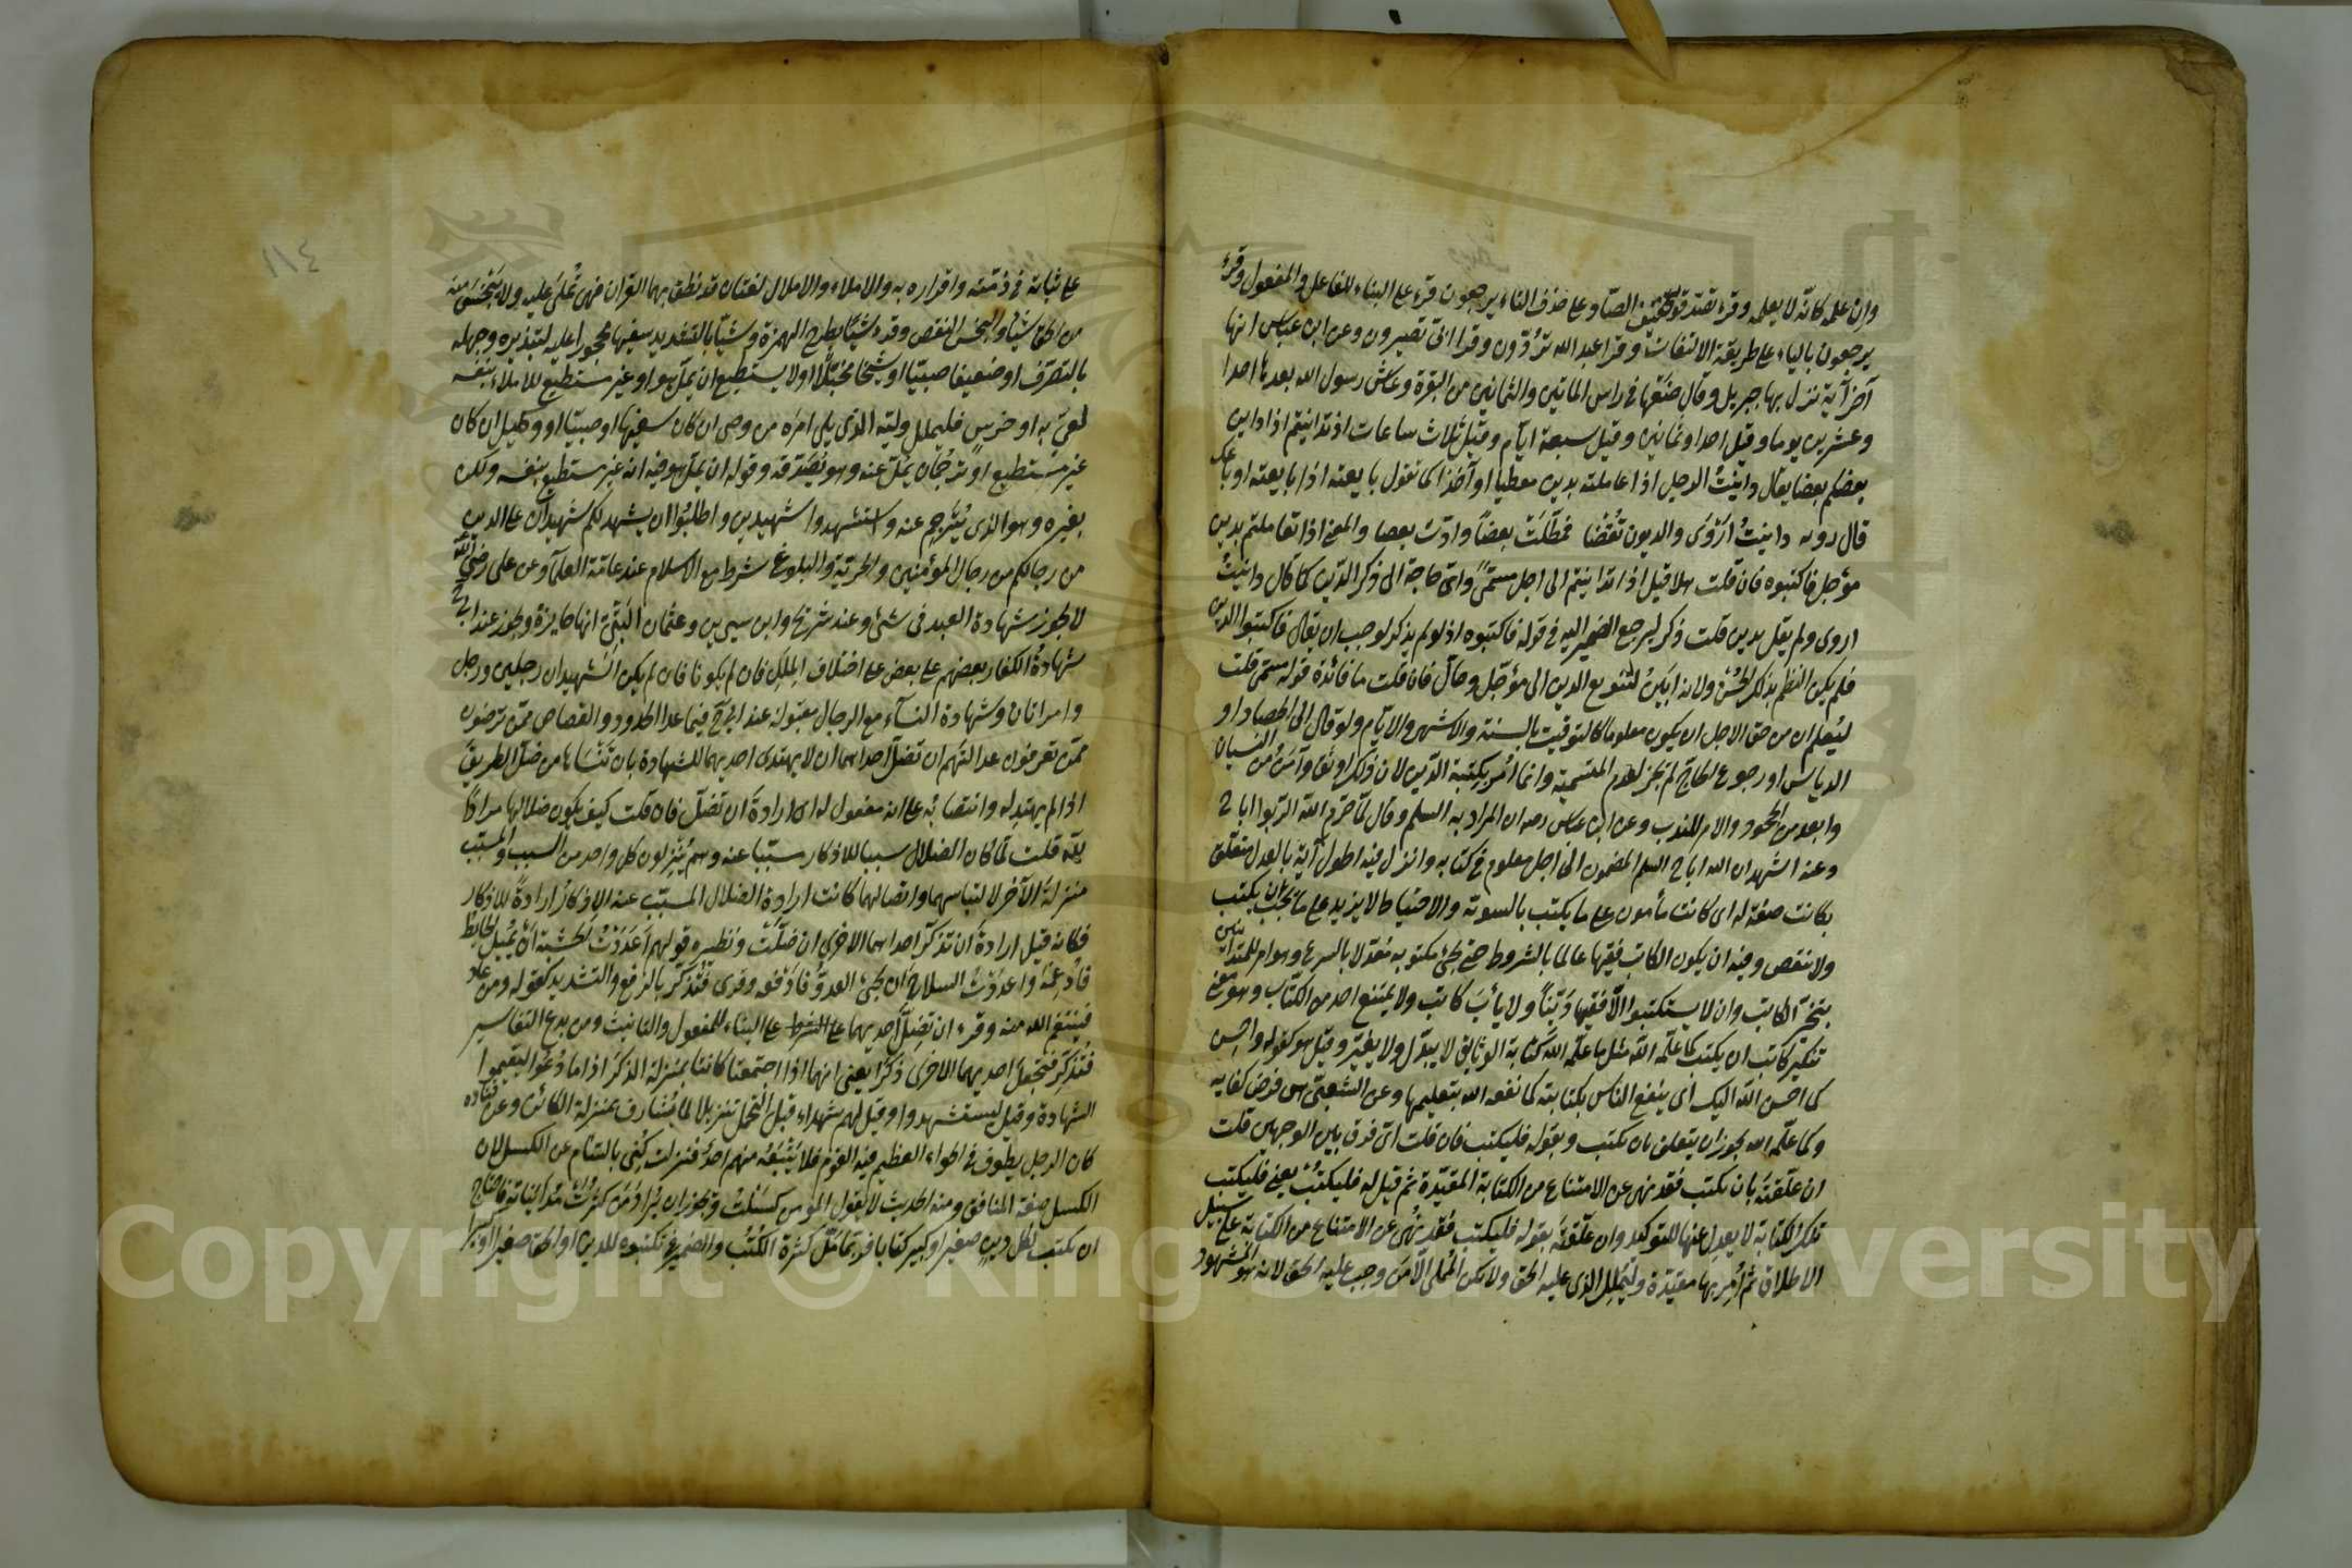 وان علم كانه لا يعلمه وقرء تصدقوا بتخفيف الصاد على حذف التاء يرجعون قرء على البناء للفاعل والمفعول وقرء
يرجعون بالياء على طريقة الالتفات وقرا عبد الله تردون وقرا ابى تصيرون وعن ابن عباس انها
آخر آية نزل بها جبريل وقال ضعها فى راس الماتين والثمانين من البقرة وعاش رسول الله بعدها احدا
وعشرين يوما وقيل احدا وثمانين وقيل سبعة ايام وقيل ثلاث ساعات اذ تداينتم اذا داين
بعضكم بعضا يقال داينت الرجل اذا عاملته بدين معطيا او آخذا كما تقول بايعته اذا بايعته او باعك
قال روبه داينت اروى والديون تقضا فمطلت بعضا وادت بعضا والمعنى اذا تعاملتم بدين
مؤجل فاكتبوه فان قلت هلا قيل اذا تداينتم الى اجل مسمى واى حاجة الى ذكر الدين كما قال داينت
اروى ولم يقل بدين قلت ذكر ليرجع الضمير اليه فى قوله فاكتبوه اذ لو لم يذكر لوجب ان يقال فاكتبوا الدين
فلم يكن النظم بذلك الحسن ولانه ابين لتنويع الدين الى مؤجل وحال فان قلت ما فائدة قوله مسمى قلت
ليعلم ان من حق الاجل ان يكون معلوما كالتوقيت بالسنة والاشهر والايام ولو قال الى الحصاد او
الدياس او رجوع الحاج لم يجز لعدم التسمية وانما امر بكتبة الدين لان ذلك اوثق وآمن من النسيان
وابعد من الجحود والامر للندب وعن ابن عباس رضه ان المراد به السلم وقال لما حرم الله الربوا اباح
وعنه اشهد ان الله اباح السلم المضمون الى اجل معلوم فى كتابه وانزل فيه اطول آية بالعدل متعلق
بكاتب صفة له اى كاتب مأمون على ما يكتب بالسوية والاحتياط لا يزيد على ما يجب ان يكتب
ولا ينقص وفيه ان يكون الكاتب فقيها عالما بالشروط حتى يجئ مكتوبه معدلا بالشرع وهو امر للمتداينين
بتخير الكاتب وان لا يستكتبوا الا فقيها دينا ولا يأب كاتب ولا يمتنع احد من الكتاب وهو معنى
تنكير كاتب ان يكتب كما علمه الله مثل ما علمه الله كتابة الوثائق لا يبدل ولا يغير وقيل هو كقوله واحسن
كما احسن الله اليك اى ينفع الناس بكتابته كما نفعه الله بتعليمها وعن الشعبى هى فرض كفايه
وكما علمه الله يجوز ان يتعلق بان يكتب وبقوله فليكتب فان قلت اى فرق بين الوجهين قلت
ان علقته بان يكتب فقد نهى عن الامتناع من الكتابة المقيدة ثم قيل له فليكتب يعنى فليكتب
تلك الكتابة لا يعدل عنها للتوكيد وان علقته بقوله فليكتب فقد نهى عن الامتناع من الكتابة على سبيل
الاطلاق ثم امر بها مقيدة وليملل الذى عليه الحق ولا يكن المملى الا من وجب عليه الحق لانه هو المشهود
على ثباته فى ذمته واقراره به والاملاء والاملال لغتان قد نطق بهما القران فهى تملى عليه ولا يبخس منه
من الحق شيئا والبخس النقص وقرء شيا بطرح الهمزة وشيا بالتشديد سفيها محجورا عليه لتبذيره وجهله
بالتصرف او ضعيفا صبيا او شيخا مختلا او لا يستطيع ان يمل هو او غير مستطيع للاملاء بنفسه
لعى به او خرس فليملل وليه الذى يلى امره من وصى ان كان سفيها او صبيا او وكيل ان كان
غير مستطيع او ترجمان يمل عنه وهو يصدقه وقوله ان يمل هو فيه انه غير مستطيع بنفسه ولكن
بغيره وهو الذى يترجم عنه واستشهدوا شهيدين واطلبوا ان يشهد لكم شهيدان على الدين
من رجالكم من رجال المؤمنين والحرية والبلوغ شرط مع الاسلام عند عامة العلماء وعن على رضى الله عنه
لا يجوز شهادة العبد فى شئ وعند شريح وابن سيرين وعثمان البتى انها جايزة ويجوز عند ابى ح
شهادة الكفار بعضهم على بعض على اختلاف الملل فان لم يكونا فان لم يكن الشهيدان رجلين فرجل
وامراتان وشهادة النساء مع الرجال مقبولة عند ابى ح فيما عدا الحدود والقصاص ممن ترضون
ممن تعرفون عدالتهم ان تضل احداهما ان لا يهتدى احديهما للشهادة بان تنساها من ضل الطريق
اذا لم يهتد له وانتصابه على انه مفعول له اى ارادة ان تضل فان قلت كيف يكون ضلالها مرادا
لله قلت لما كان الضلال سببا للاذكار مسببا عنه وهم ينزلون كل واحد من السبب والمسبب
منزلة الآخر لالتباسهما واتصالهما كانت ارادة الضلال المسبب عنه الاذكار ارادة للاذكار
فكانه قيل ارادة ان تذكر احداهما الاخرى ان ضلت ونظيره قولهم اعددت الخشبة ان يميل الحايط
فادعمه واعددت السلاح ان يجئ العدو فادفعه وقرئ فتذكر بالرفع والتشديد كقوله ومن عاد
فينتقم الله منه وقرء ان تضل احديهما على الشرط على البناء للمفعول والتانيث ومن بدع التفاسير
فتذكر فتجعل احديهما الاخرى ذكرا يعنى انهما اذا اجتمعتا كانتا بمنزلة الذكر اذا ما دعوا ليقيموا
الشهادة وقيل ليستشهدوا وقيل لهم شهداء قبل التحمل تنزيلا لما يشارف بمنزلة الكائن وعن قتاده
كان الرجل يطوف فى الحواء العظيم فيه القوم فلا يتبعه منهم احد فنزلت كنى بالسأم عن الكسل لان
الكسل صفة المنافق ومنه الحديث لا يقول المؤمن كسلت ويجوز ان يراد من كثرت مدايناته فاحتاج
ان يكتب لكل دين صغير او كبير كتابا فربما مل كثرة الكتب والضمير فى تكتبوه للدين او الحق صغيرا او كبيرا
١١٤
Copyright © King Saud University